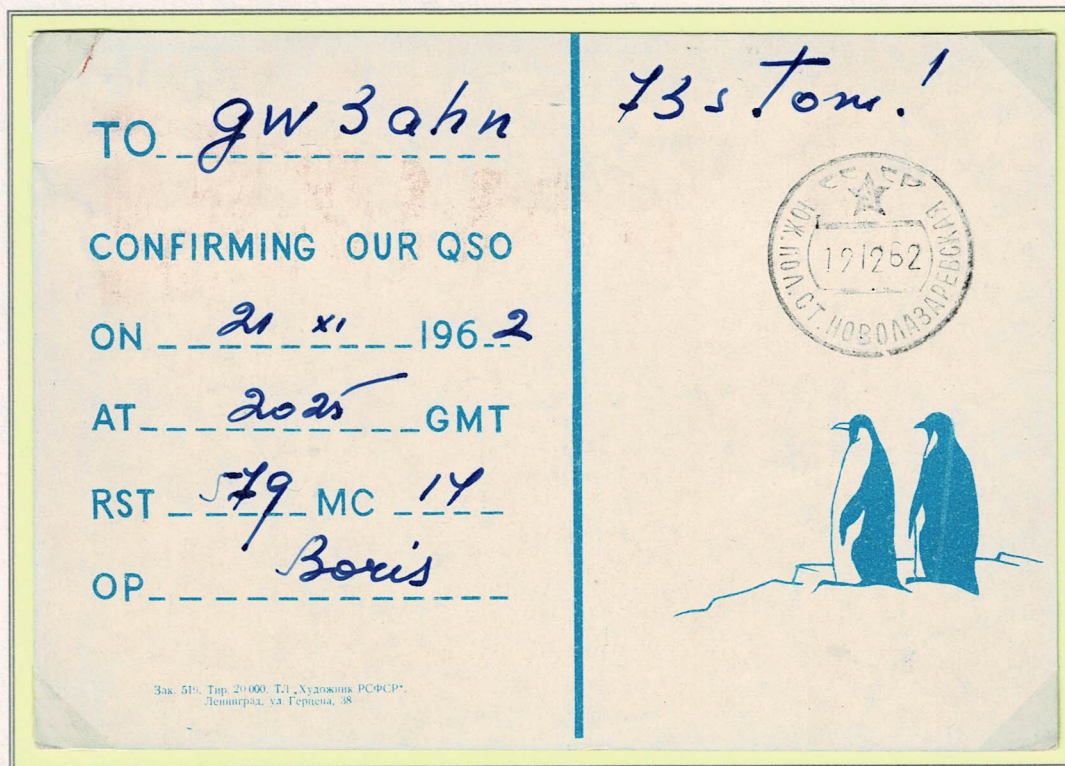 TO gw3ahn
CONFIRMING OUR QSO
ON 21 XI 1962
AT 2025 GMT
RST 579 MC 14
OP Boris
Зак. 519. Тир. 20 000. ТЛ „Художник РСФСР“.
Ленинград, ул. Герцена, 38
73s Tom!
СССР
ЮЖ. ПОЛ. СТ. НОВОЛАЗАРЕВСКАЯ
191262